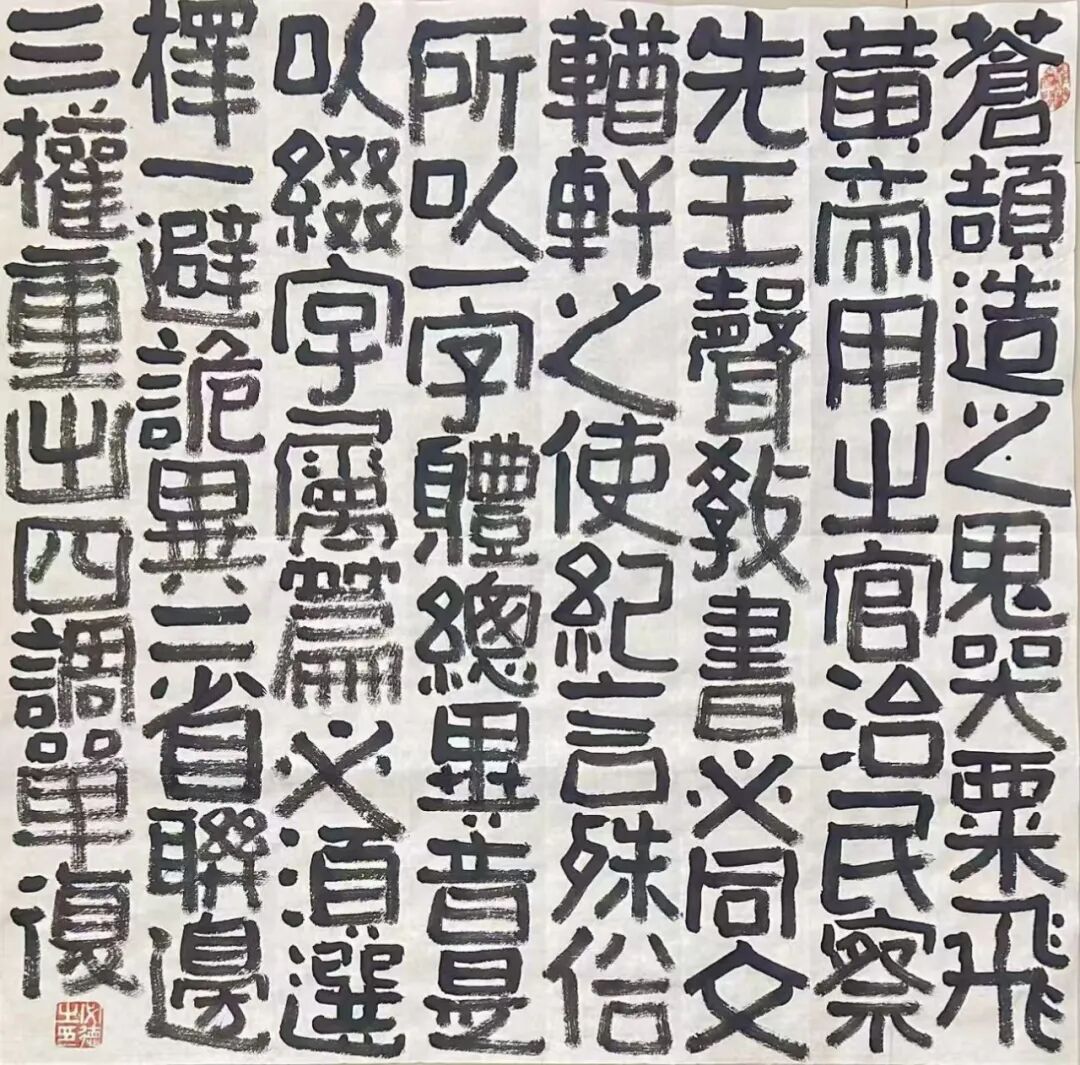 蒼頡造之鬼哭粟飛
黄帝用之官治民察
先王聲教書必同文
輶軒之使紀言殊俗
所以一字體總異音是
以綴字屬篇必須選
擇一避詭異二省聯邊
三權重出四調單復